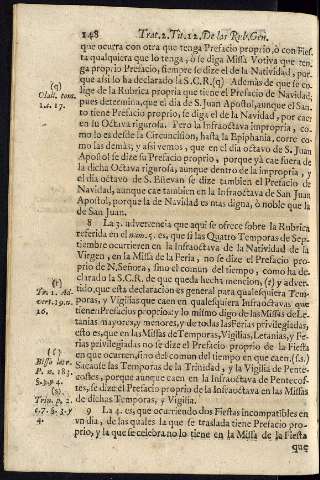 148 Trat.2. Tit.12. De las Rub. Gen.
que ocurra con otra que tenga Prefacio proprio, ò con Fies-
ta qualquiera que lo tenga, ò se diga Missa Votiva que ten-
ga proprio Prefacio, siempre se dize el de la Natividad, por-
que assi lo ha declarado la S.C.R.(q) Ademàs de que se co-
lige de la Rubrica propria que tiene el Prefacio de Navidad,
pues determina, que el dia de S. Juan Apostol, aunque el San-
to tiene Prefacio proprio, se diga el de la Navidad, por caer
en su Octava rigurosa. Pero la Infraoctava impropria, co-
mo lo es desde la Circuncision, hasta la Epiphania, corre co-
mo las demàs; y assi vemos, que en el dia octavo de S. Juan
Apostol se dize su Prefacio proprio, porque yà cae fuera de
la dicha Octava rigurosa, aunque dentro de la impropria, y
el dia octavo de S. Estevan se dize tambien el Prefacio de
Navidad, aunque cae tambien en la Infraoctava de San Juan
Apostol, porque la de Navidad es mas digna, ò noble que la
de San Juan.
8 La 3. advertencia que aqui se ofrece sobre la Rubrica
referida en el num. 5. es, que si las Quatro Temporas de Sep-
tiembre ocurrieren en la Infraoctava de la Natividad de la
Virgen, en la Missa de la Feria, no se dize el Prefacio pro-
prio de N. Señora, sino el comun del tiempo, como ha de-
clarado la S.C.R. de que queda hecha mencion, (r) y adver-
tido, que esta declaracion es general para qualesquiera Tem-
poras, y Vigilias que caen en qualesquiera Infraoctavas que
tienen Prefacios proprios: y lo mismo digo de las Missas de Le-
tanias mayores, y menores, y de todas las Ferias privilegiadas,
esto es, que en las Missas de Temporas, Vigilias, Letanias, y Fe-
rias privilegiadas no se dize el Prefacio proprio de la Fiesta
en que ocurren, sino del comun del tiempo en que caen: (s.)
Sacanse las Temporas de la Trinidad, y la Vigilia de Pente-
costes, porque aunque caen en la Infraoctava de Pentecos-
tes, se dize el Prefacio proprio de la Infraoctava en las Missas
de dichas Temporas, y Vigilia.
9 La 4. es, que ocurriendo dos Fiestas incompatibles en
un dia, de las quales la que se traslada tiene Prefacio pro-
prio, y la que se celebra no lo tiene en la Missa de la Fiesta
que
(q)
17.
(r)
16.
4.